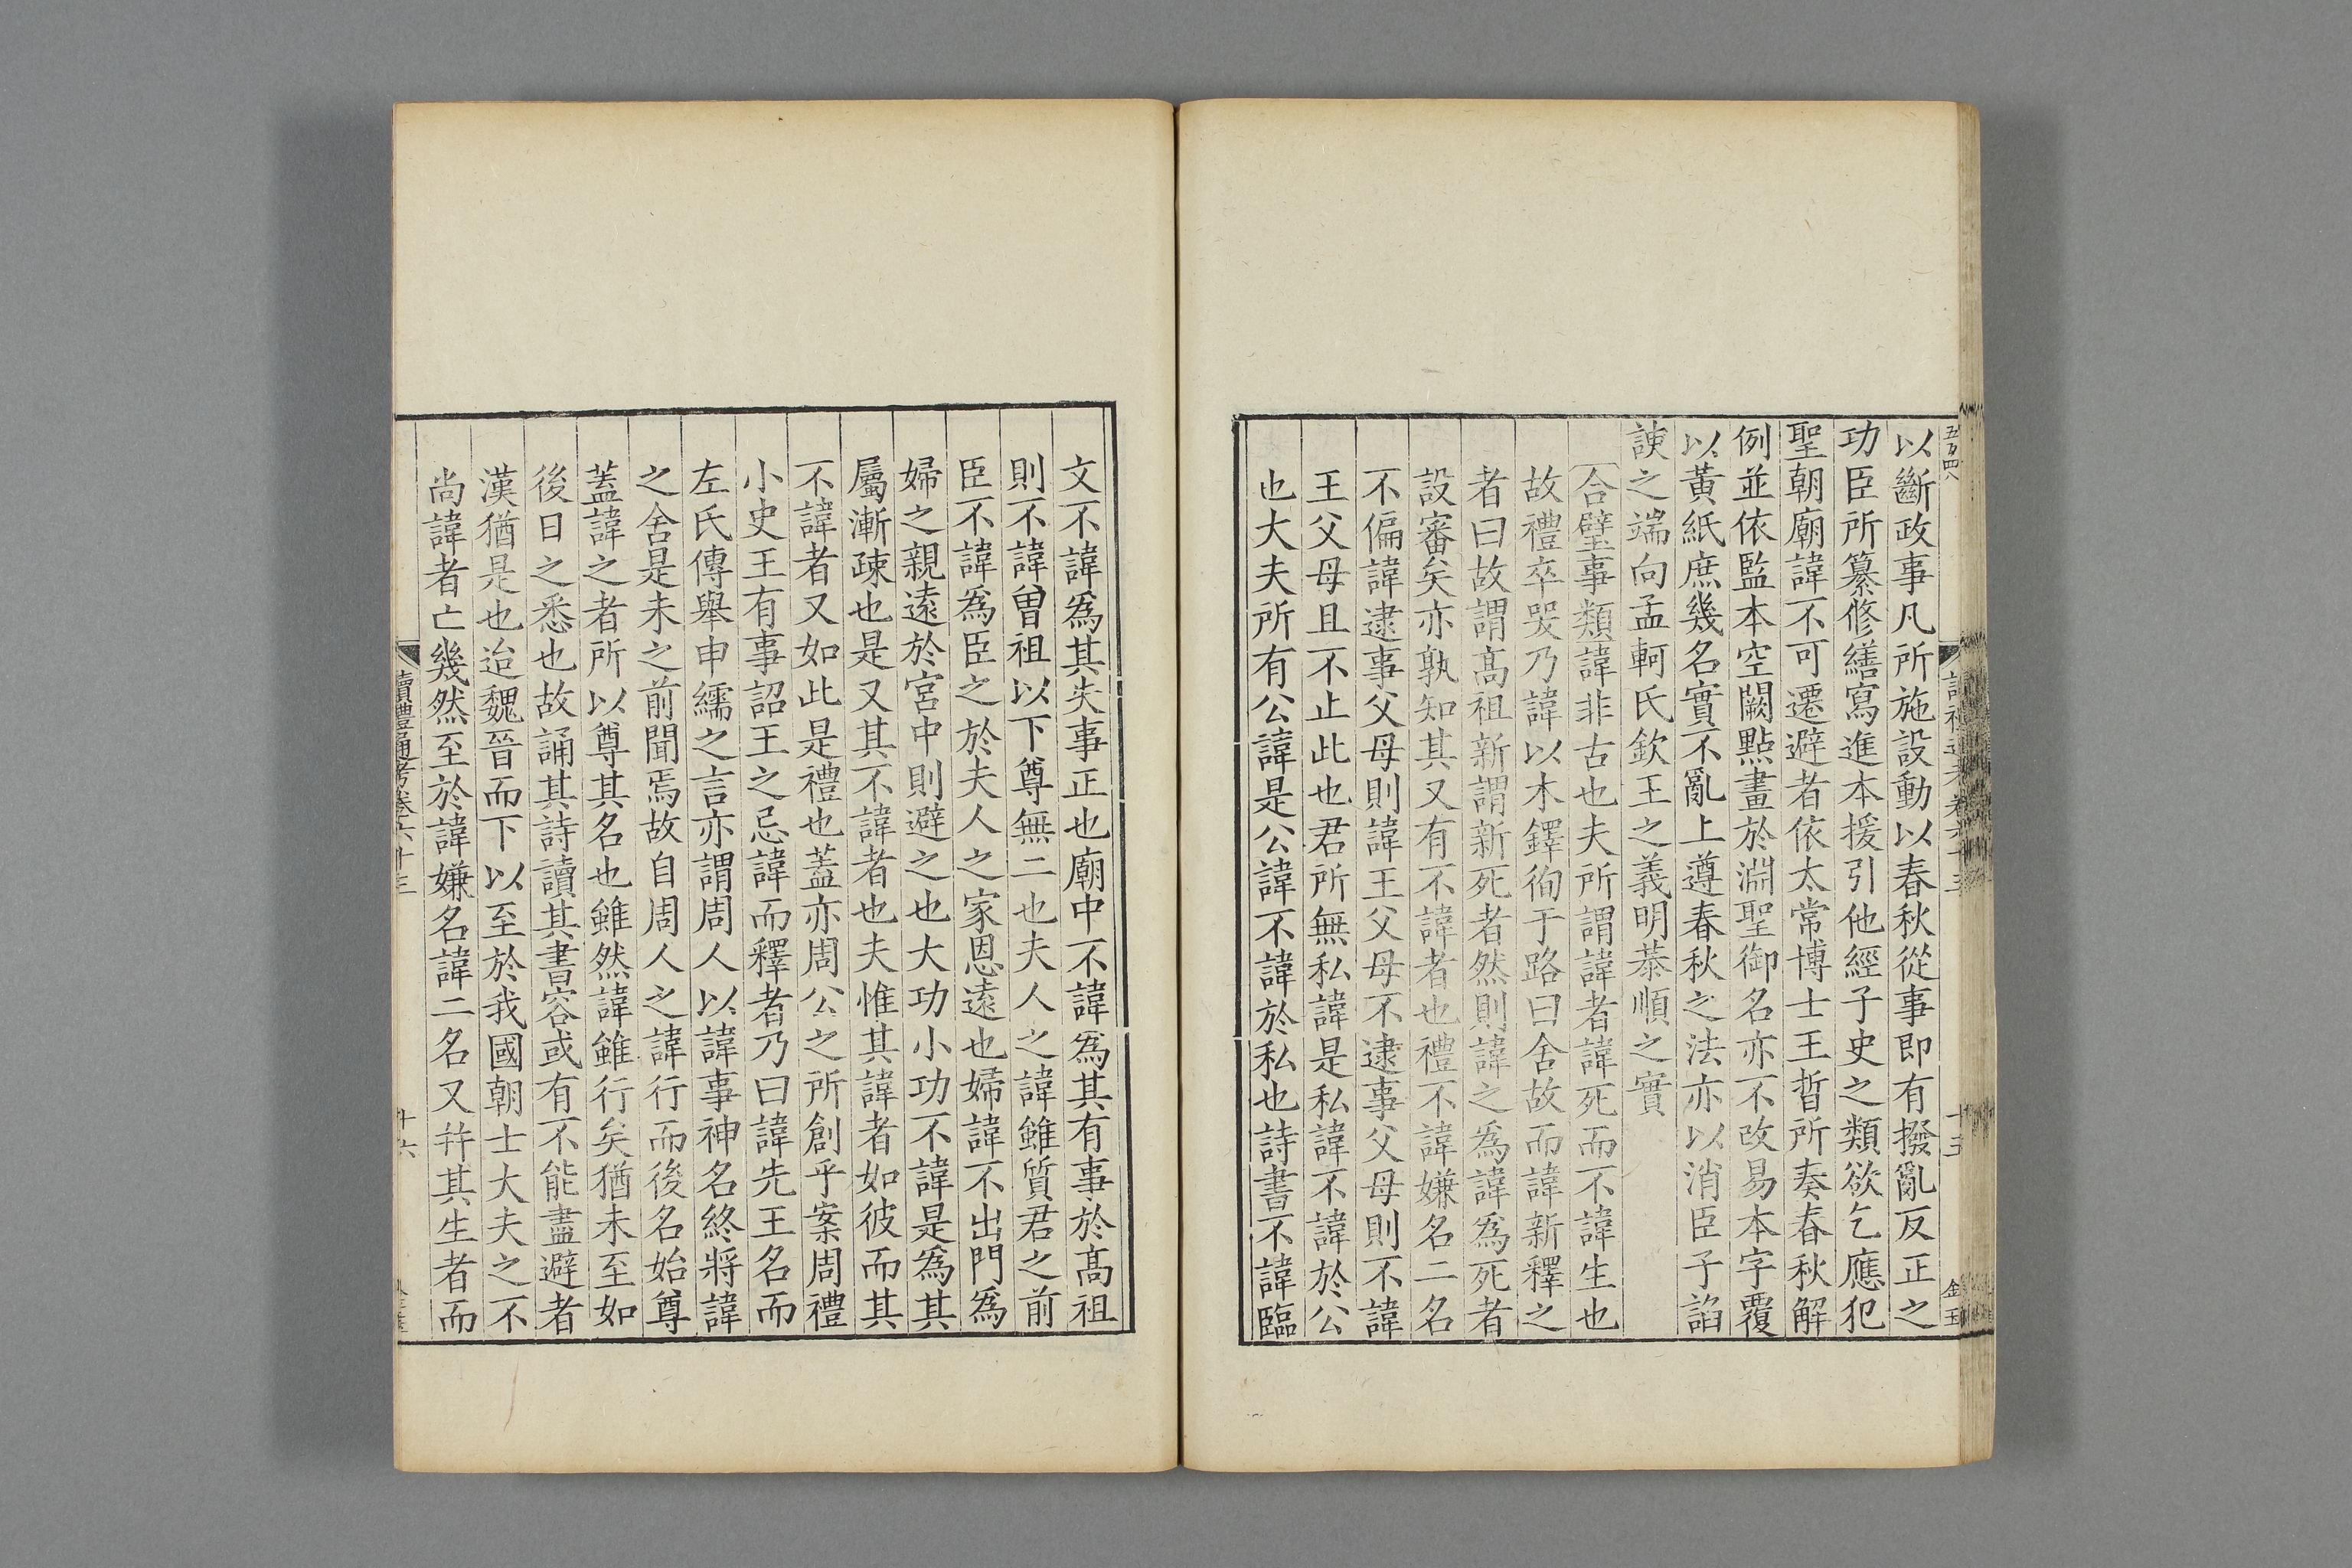 以斷政事凡所施設動以春秋從事即有撥亂反正之
功臣所纂修繕寫進本援引他經子史之類欲乞應犯
聖朝廟諱不可遷避者依太常博士王晳所奏春秋解
例並依監本空闕點畫於淵聖御名亦不改易本字覆
以黃紙庶幾名實不亂上遵春秋之法亦以消臣子諂
諛之端向孟軻氏欽王之義明恭順之實
合璧事類諱非古也夫所謂諱者諱死而不諱生也
故禮卒哭乃諱以木鐸徇于路曰舍故而諱新釋之
者曰故謂髙祖新謂新死者然則諱之爲諱爲死者
設審矣亦孰知其又有不諱者也禮不諱嫌名二名
不偏諱逮事父母則諱王父母不逮事父母則不諱
王父母且不止此也君所無私諱是私諱不諱於公
也大夫所有公諱是公諱不諱於私也詩書不諱臨
文不諱爲其失事正也廟中不諱爲其有事於髙祖
則不諱曽祖以下尊無二也夫人之諱雖質君之前
臣不諱爲臣之於夫人之家恩遠也婦諱不出門爲
婦之親遠於宮中則避之也大功小功不諱是爲其
屬漸疎也是又其不諱者也夫惟其諱者如彼而其
不諱者又如此是禮也蓋亦周公之所創乎案周禮
小史王有事詔王之忌諱而釋者乃曰諱先王名而
左氏傳舉申繻之言亦謂周人以諱事神名終將諱
之舍是未之前聞焉故自周人之諱行而後名始尊
蓋諱之者所以尊其名也雖然諱雖行矣猶未至如
後日之悉也故誦其詩讀其書容或有不能盡避者
漢猶是也迨魏晉而下以至於我國朝士大夫之不
尚諱者亡幾然至於諱嫌名諱二名又幷其生者而
讀禮通考卷六十三
十六